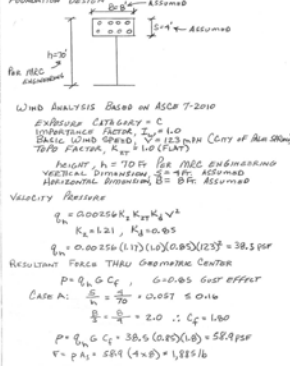 FOUNDATION DESIGN
B=8' ASSUMED
S=4' ASSUMED
h=70'
PER MRC
ENGINEERING
WIND ANALYSIS BASED ON ASCE 7-2010
EXPOSURE CATEGORY = C
IMPORTANCE FACTOR, I = 1.0
BASIC WIND SPEED, V = 123 MPH (CITY OF PALM
TOPO FACTOR, KZT = 1.0 (FLAT)
HEIGHT, h = 70 FT PER MRC ENGINEERING
VERTICAL DIMENSION, S = 4 FT. ASSUMED
HORIZONTAL DIMENSION, B = 8 FT. ASSUMED
VELOCITY PRESSURE
qh = 0.00256 Kz Kzt Kd V²
Kz = 1.21 , Kd = 0.85
qh = 0.00256 (1.17)(1.0)(0.85)(123)² = 38.5 PSF
RESULTANT FORCE THRU GEOMETRIC CENTER
P = qh G Cf , G = 0.85 GUST EFFECT
CASE A: S/h = 4/70 = 0.057 ≤ 0.16
B/S = 8/4 = 2.0 ∴ Cf = 1.80
P = qh G Cf = 38.5 (0.85)(1.8) = 58.9 PSF
F = P As = 58.9 (4×8) = 1,885 lb